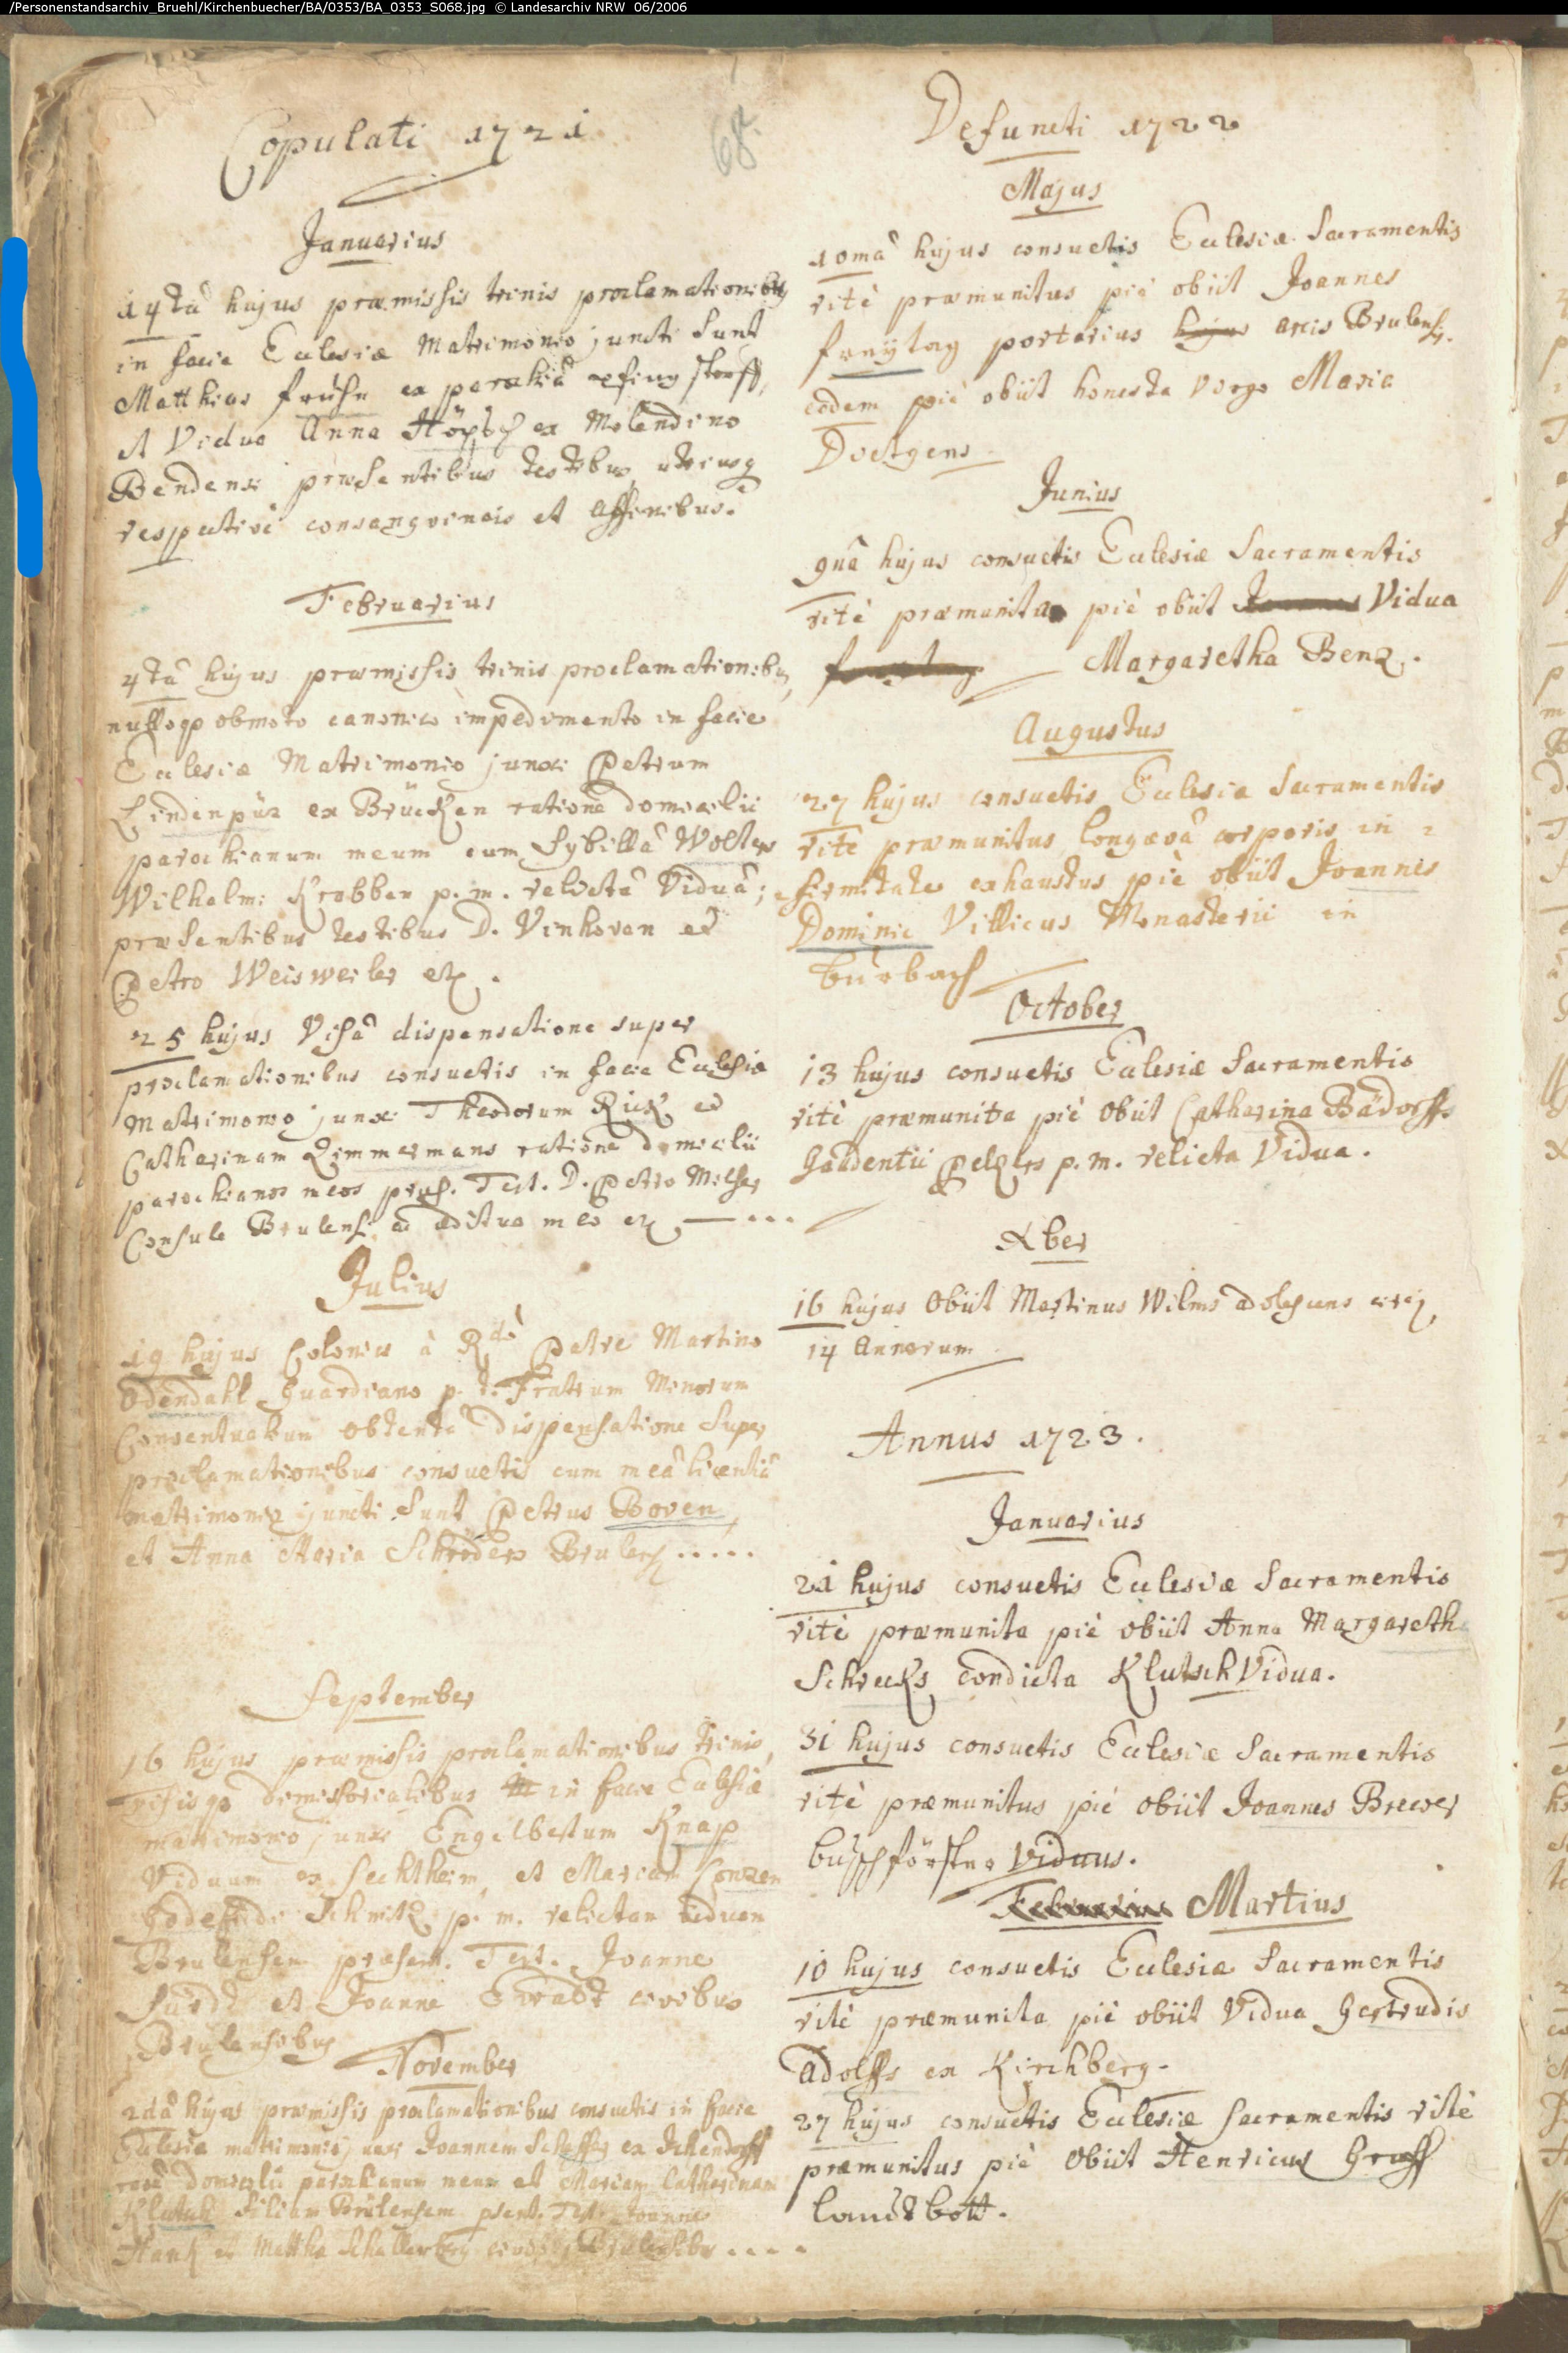 /Personenstandsarchiv_Bruehl/Kirchenbuecher/BA/0353/BA_0353_S068.jpg © Landesarchiv NRW 06/2006
Copulati 1721
68.
Januarius
14tâ hujus præmissis trinis proclamationibus
in facie Ecclesiæ Matrimonio juncti sunt
Matthias frühn ex parochiâ
et Vidua Anna ex Molendino
Bendensi præsentibus testibus utriusq
respectivè consangvineis et affinibus.
Februarius
4tâ hujus præmissis trinis proclamationibus
nulloqe obmoto canonico impedimento in facie
Ecclesiæ Matrimonio junxi Petrum
Lindenpüz ex Brücken ratione domicilii
parochianum meum cum Sybillâ Wolters
Wilhelmi Krobben p. m. relictâ Viduâ;
præsentibus testibus D. Vinhoven et
Petro Weisweiler etc.
25 hujus Visâ dispensatione super
proclamationibus consuetis in facie Ecclesiæ
Matrimonio junxi Theodorum Rick et
Catharinam Zimmermans ratione domicilii
parochianos meos præs. Test. D. Petro Melcher
Consule Brulensi et ædituo meo etc ....
Julius
19 hujus Coloniæ à Rdo Patre Martino
Odendahl Guardiano p. t. Fratrum Minorum
Conventualium obtentâ dispensatione super
proclamationibus consuetis cum meâ licentiâ
matrimonio juncti sunt Petrus Boven
et Anna Maria Schröders Brulens .....
September
16 hujus præmissis proclamationibus trinis,
visisqe dimissorialibus in facie Ecclesiæ
matrimonio junxi Engelbertum Knap
Viduum ex Sechtheim, et Mariam Conzen
Godefridi Schmitz p. m. relictam viduam
Brulensem præsent. Test. Joanne
et Joanne civibus
Brulensibus
November
2dâ hujus præmissis proclamationibus consuetis in facie
Ecclesiæ matrimonio junxi Joannem Scheffer ex
domicilii parochianum meum et Mariam Catharinam
Klutsch filiam Brulensem Test. Joanne
et Brulensibus ....
Defuncti 1722
Majus
10mâ hujus consuetis Ecclesiæ Sacramentis
ritè præmunitus piè obiit Joannes
freÿtag portarius hujus arcis Brulensis.
eodem piè obiit honesta Virgo Maria
Doetgens
Junius
9nâ hujus consuetis Ecclesiæ Sacramentis
ritè præmunita piè obiit Joannes Vidua
freytag Margaretha Benz.
Augustus
27 hujus consuetis Ecclesiæ Sacramentis
ritè præmunitus longævâ corporis in=
firmitate exhaustus piè obiit Joannes
Dominic Villicus Monasterii in
burbach
October
13 hujus consuetis Ecclesiæ Sacramentis
ritè præmunita piè obiit Catharina Bädorffs
Gaudentii Pelzers p. m. relicta Vidua.
Xber
16 hujus Obiit Martinus Wilms adolescens circ.
14 Annorum
Annus 1723.
Januarius
21 hujus consuetis Ecclesiæ Sacramentis
ritè præmunita piè obiit Anna Margaretha
Schrecks condicta Klutsch Vidua.
31 hujus consuetis Ecclesiæ Sacramentis
ritè præmunitus piè obiit Joannes Brewer
büschförster viduus.
Februarius Martius
10 hujus consuetis Ecclesiæ Sacramentis
ritè præmunita piè obiit Vidua Gertrudis
Adolffs ex Kirchberg.
27 hujus consuetis Ecclesiæ sacramentis ritè
præmunitus piè Obiit Henricus Groff
landtbott.